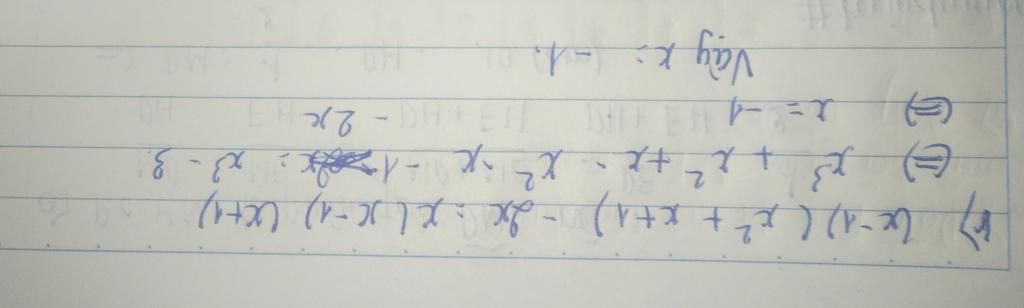 k) (x-1) (x² + x + 1) - 2x = x(x-1) (x+1)
(=) x³ + x² + x - x² - x - 1 - 2x = x³ - x
(=) x = -1
Vậy x = -1.